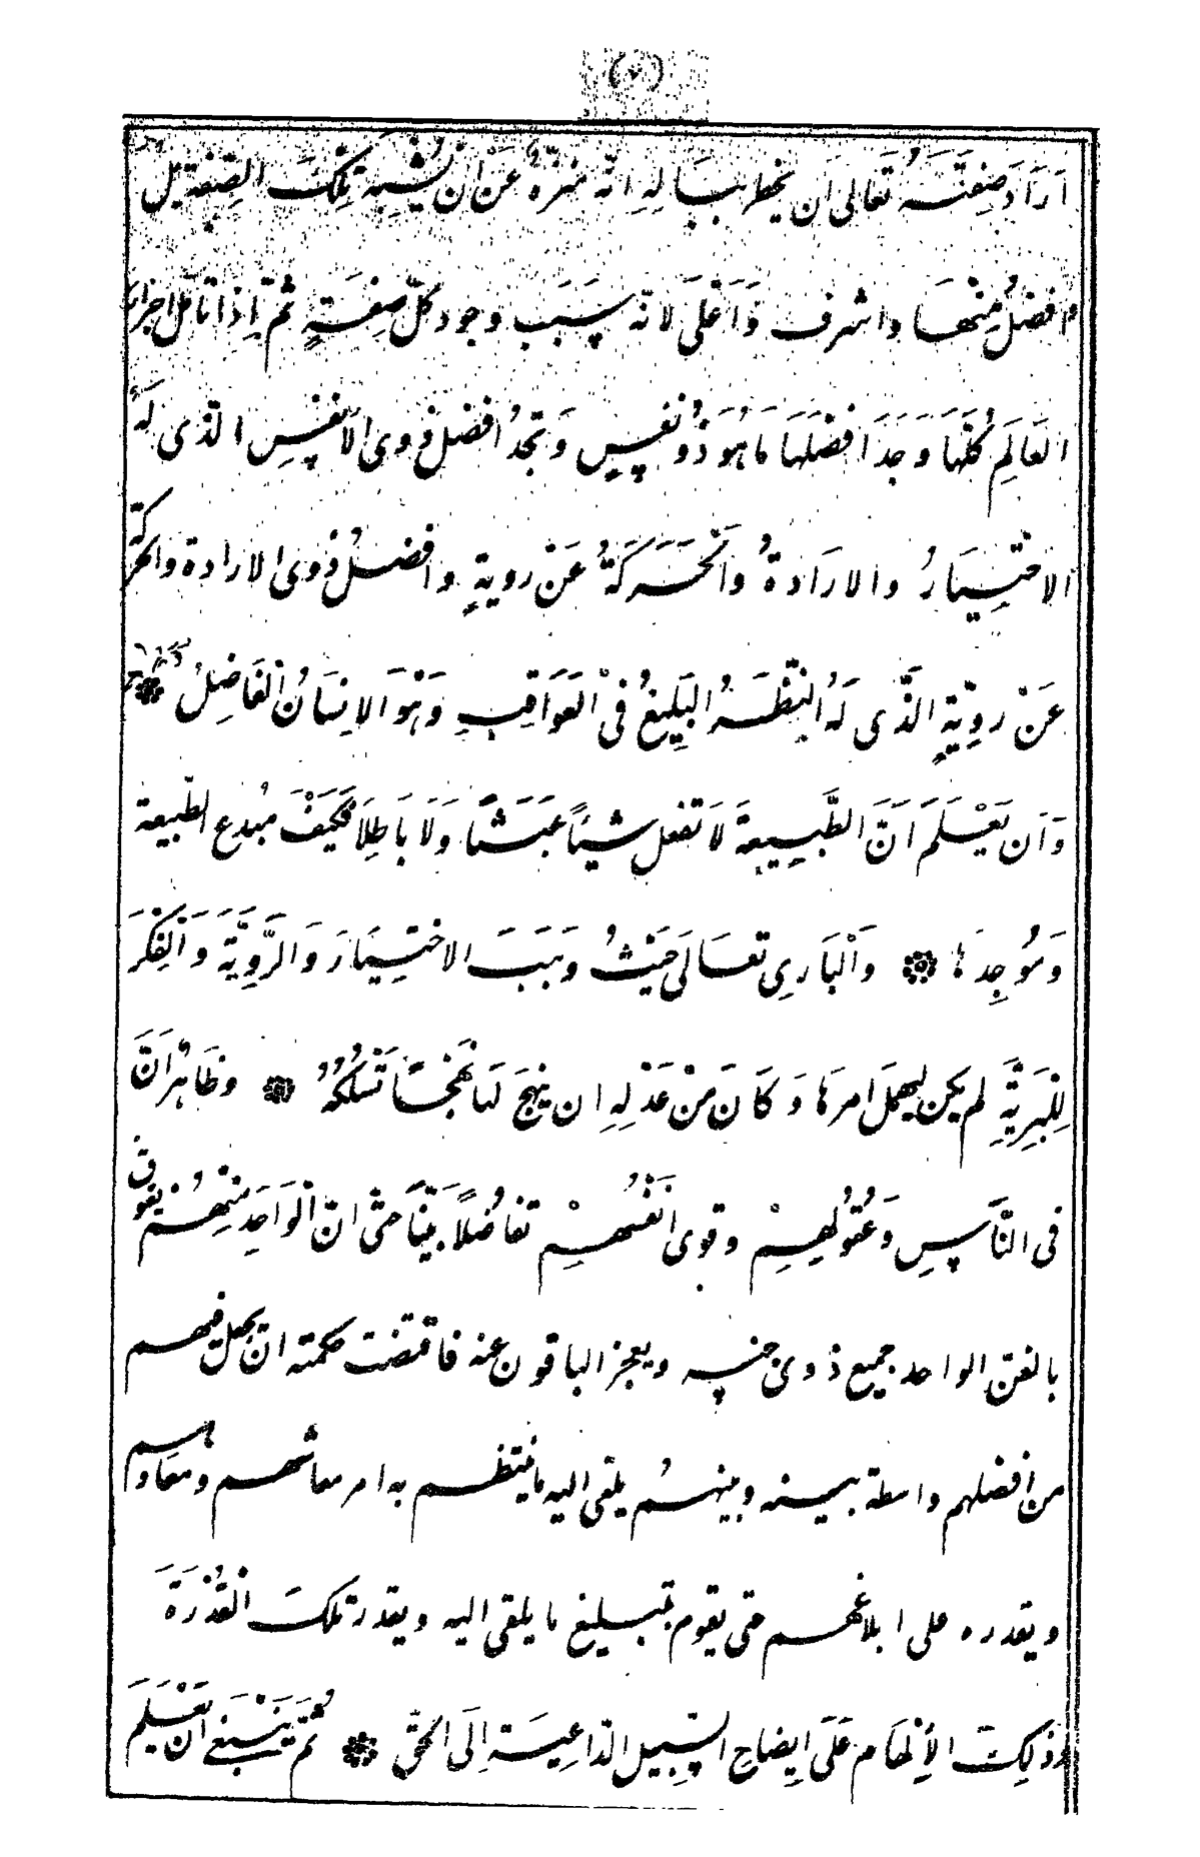 (٧)
اَرَادَ صِفَتَہُ تَعَالٰى اَن یخطر بِبَالِهِ اِنّه مُنَزّهٌ عَنْ اَنْ تُشْبِهَ تِلْكَ الصِفة بل
افضلُ مِنْهَا واشرف وَاَعْلٰى لانّه سَبَب وجود كلّ صِفَةٍ ثمّ اِذا تامّل اجزاء
العَالَمِ كُلّهَا وَجَدَ افضَلهَا مَا هُوَ ذُو نفسٍ وَتجدُ افضل ذوى الاَنفسِ الّذى لَهُ
الاختِيَارُ والارَادةُ وَالْحَرَكَةُ عَنْ رويةٍ وافضلُ ذوى الارادة والحركة
عَنْ رَوِيّةٍ الَّذى لَهُ النّظَرُ البَلِيغُ فىْ الْعَوَاقِبِ وَهُوَ الاِنسَانُ الْفَاضِلُ
وَاَن يَعْلَمَ اَنَّ الطَّبِيعةَ لاَ تفعل شيئًا عَبَثًا وَلَا بَاطِلَا فَكَيْفَ مبُدع الطّبيعة
وَمُوجِدهَا ۞ وَالْبَارِى تعَالَى حَيْثُ وَهَبَ الاختِيَارَ وَالرَّوِيَّةَ وَالْفِكْرَ
لِلْبَرِيَّةِ لم يكن ليهملَ امرهَا وَكَانَ مِنْ عَدْلِهِ ان ينهجَ لهَا نَهْجًا تَسْلُكُهُ ۞ وظَاهِرٌ اَنَّ
فى النَّاسِ وَعُقُولِهِمْ وقوى اَنْفُسِهِمْ تفَاضُلًا بَيّنًا حتّى انّ الْوَاحِدَ مِنْهُمْ يفوق
بالفنّ الواحد جميع ذوى جنسه ويعجز الباقون عنه فاقتضت حكمته ان يجعل فيهم
من افضلهم واسطة بينه وبينهُم يلقى اليه ما ينتظم به امر معاشهم ومعادهم
ويقدره على ابلاغهم حتى يقوم بتبليغ ما يلقى اليه ويقدر تلكَ الْقُدْرَةَ
وَذٰلِكَ الأِلْهَام عَلَى اِيضاحِ السّبِيل الدّاعِيَةِ اِلَى الحَقّ ۞ ثُمَّ يَنْبَغِى اَنْ يَعْلَمَ